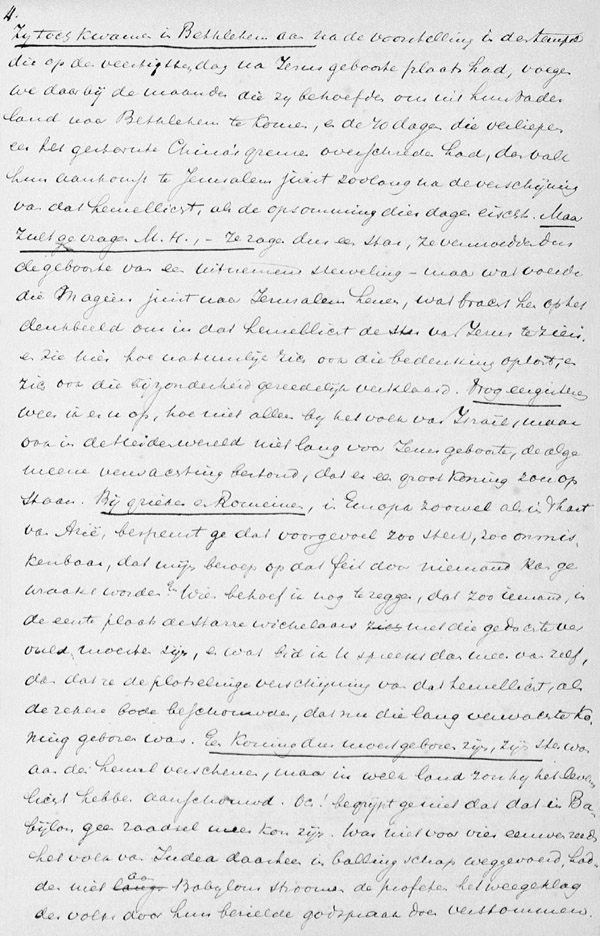 4.
Zij toch kwamen in Bethlehem aan na de voorstelling in de tempel
die op de veertigsten dag na Jezus geboorte plaats had, voegen
we daarbij de maanden die zij behoefden om uit hun vader
land naar Bethlehem te komen, en de 70 dagen die verliepen
eer het gesternte China's grenzen overschreden had, dan valt
hun aankomst te Jerusalem juist zoolang na de verschijning
van dat hemellicht, als de opsomming dier dagen eischt. Maar
zult ge vragen M.H., – Ze zagen dus een star, ze vermoedden dus
de geboorte van een uitnemend sterveling – maar wat voerde
die Magiërs juist naar Jerusalem henen, wat bracht hen op het
denkbeeld om in dat hemellicht de ster van Jezus te zien.
en zie hier hoe natuurlijk zich ook die bedenking oplost, en
zich ook die bijzonderheid geredelijk verklaard. Nog eergisteren
wees ik er u op, hoe niet alleen bij het volk van Israël, maar
ook in de Heidenwereld niet lang voor Jezus geboorte, de alge
meene verwachting bestond, dat er een groot koning zou op
staan. Bij grieken en Romeinen, in Europa zoowel als in 't hart
van Azië, bespeurt ge dat voorgevoel zoo sterk, zoo onmis-
kenbaar, dat mijn beroep op dat feit door niemand kan ge
wraakt worden. Wien behoef ik nog te zeggen, dat zoo iemand, in
de eerste plaats de starrewichelaars met die gedachte ver
vuld moesten zijn, en wat bid ik u spreekt dan meer van zelf,
dan dat ze de plotselinge verschijning van dat hemellicht, als
de zekere bode beschouwden, dat nu die lang verwachte Ko-
ning geboren was. Een Koning dus moest geboren zijn, zijn ster was
aan den hemel verschenen, maar in welk land zou hij het leven
licht hebben aanschouwd. Och! begrijpt ge niet dat dat in Ba-
bijlon geen raadsel meer kon zijn. Was niet voor vier eeuwen reeds
het volk van Judea daarheen in ballingschap weggevoerd, had-
den niet aan Babylons stroomen de profeten het weegeklag
des volks door hun bezielde godspraak doen verstommen.